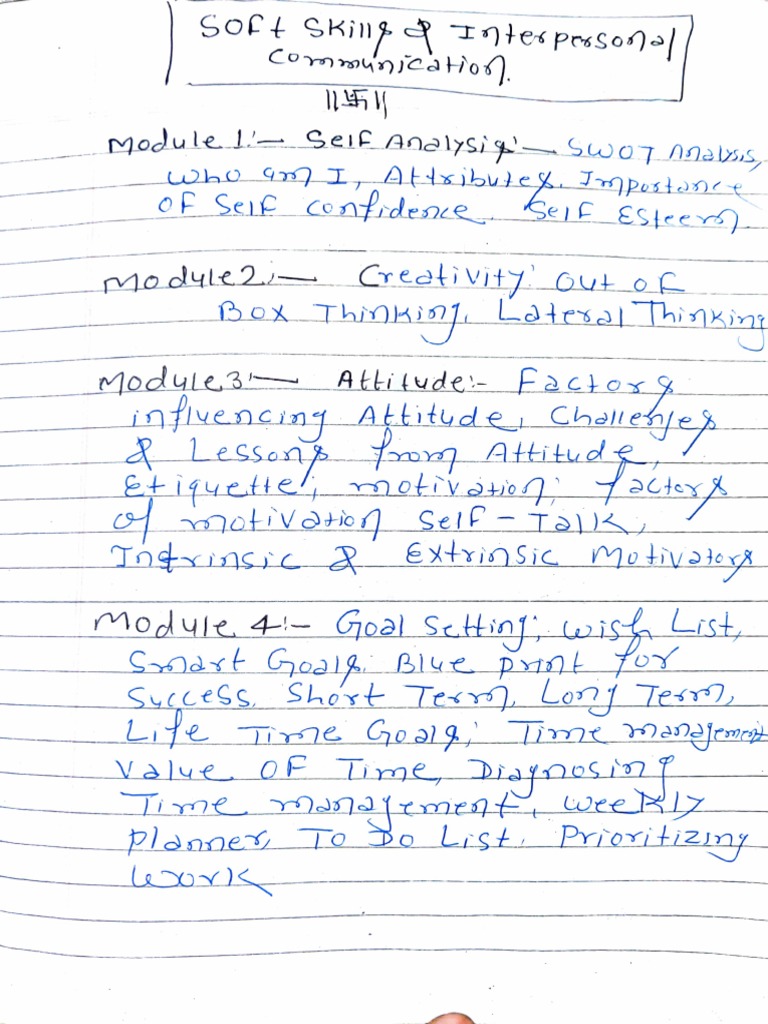 Soft Skills & Interpersonal
Communication.
||卐||
Module 1:- Self Analysis:- SWOT Analysis,
who am I, Attributes. Importance
of Self confidence. Self Esteem
Module 2:- Creativity: Out of
Box Thinking, Lateral Thinking
Module 3:- Attitude:- Factors
influencing Attitude, Challenges
& Lessons from Attitude,
Etiquette; motivation; factors
of motivation Self-Talk,
Intrinsic & Extrinsic Motivators
Module 4:- Goal Setting; Wish List,
Smart Goals. Blue print for
Success. Short Term, Long Term,
Life Time Goals; Time management
Value OF Time, Diagnosing
Time management, weekly
Planner, To Do List. Prioritizing
work